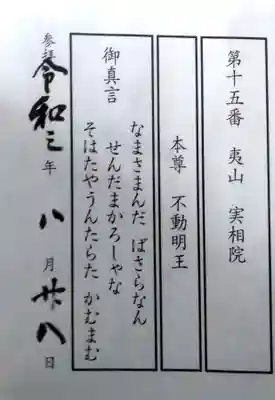 第十五番 夷山 実相院
本尊 不動明王
御真言
なまさまんだ ばさらなん
せんだまかろしゃな
そはたやうんたらた かむまむ
参拝 令和三年 八月廿八日